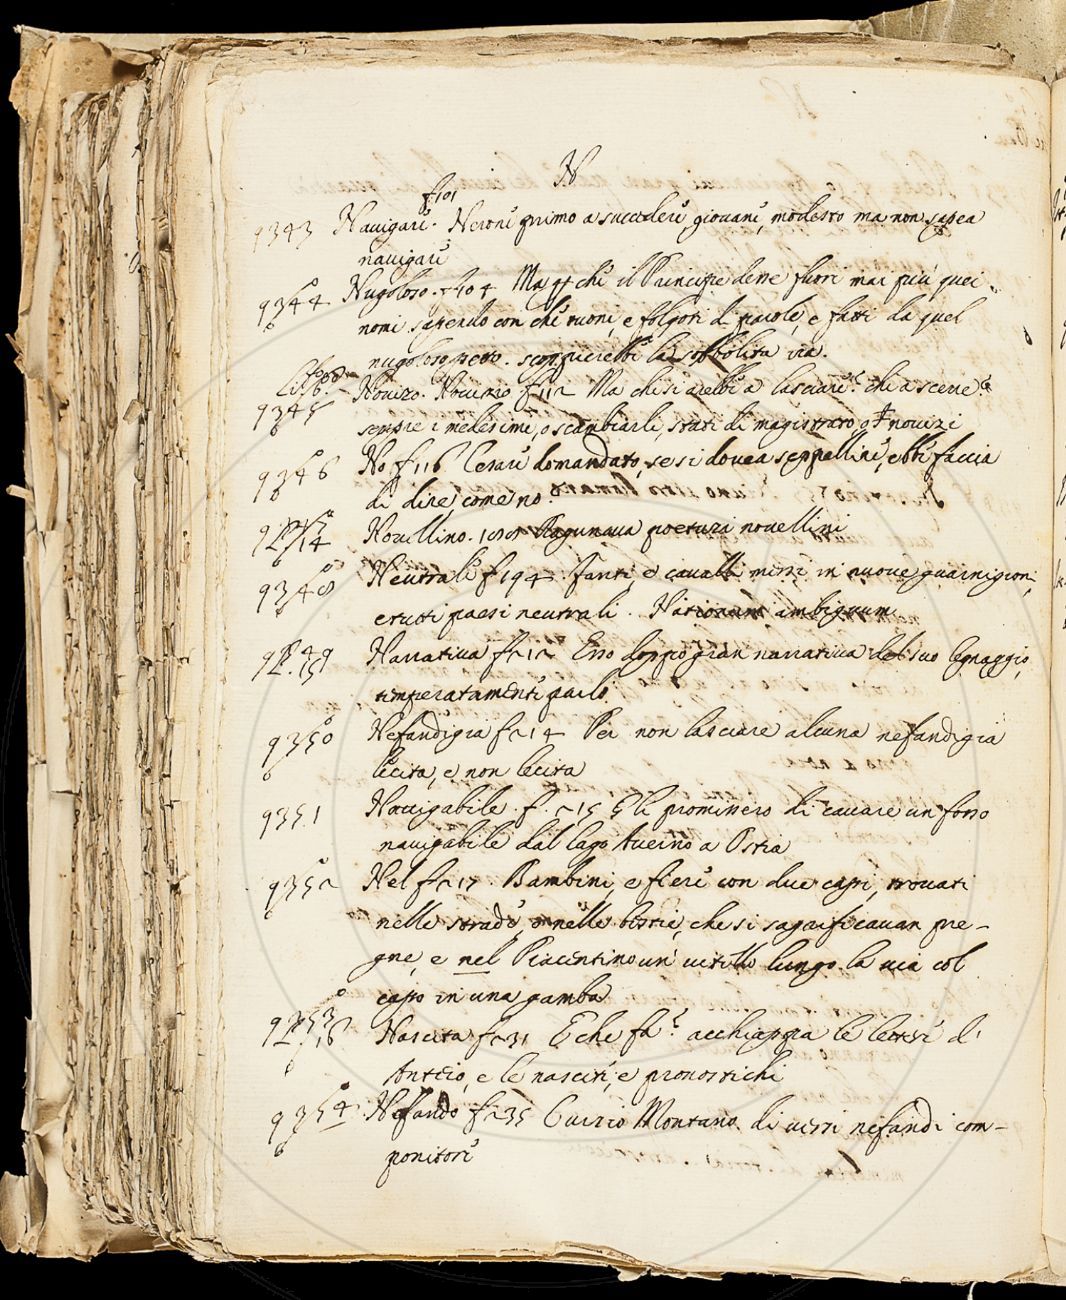 N
f 101
9343 Navigare. Nerone primo a succedere, giovane, modesto ma non sapea
navigare
9344 Nugoloso. f 104 Ma perche il Principe dette fuori mai più quei
nomi sapendo con che tuoni, e folgori di parole, e fatti da quel
nugoloso petto. scoppierebbe la sobbolita ira.
9345 Novizo. Novizio f 112 Ma che si arebbe a lasciare? chi a scerre?
sempre i medesimi, o scambiarli, stati di magistrato, o novizi
9346 No. f 116 Cesare domandato, se si dovea seppellire, ebbe faccia
di dire, come no?
Novellino. Ragunava poetuzzi novellini
9348 Neutrale f 194. Fanti, e cavalli messi in nuove guarnigioni,
e tutti paesi neutrali. Nationum ambiguum
9349 Narrativa f 212 Esso doppo gran narrativa del suo legnaggio,
temperatamente parlò
9350 Nefandigia f 214 Per non lasciare alcuna nefandigia
lecita, e non lecita
9351 Navigabile. f. 215 Gli promissero di cavare un fosso
navigabile dal lago Averno a Ostia
9352 Nel f 217. Bambini, e fiere con due capi, trovati
nelle strade, o nelle bestie, che si sagrificavan pre-
gne, e nel Piacentino un' vitello lungo la via col
capo in una gamba
9353 Nascita f 231 E che fa? acchiappa le lettere d'
Anteio, e le nascite, e pronostichi
9354 Nefando f 235 Curzio Montano di versi nefandi com-
ponitore